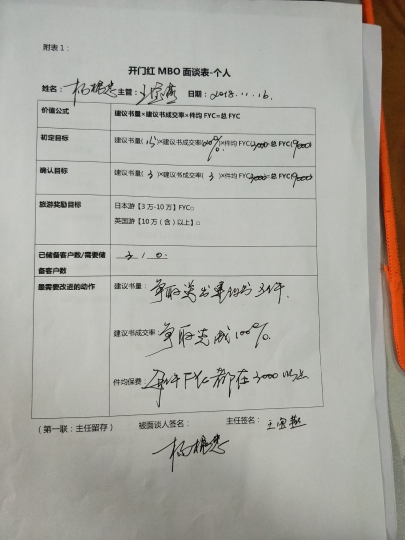 附表1：
开门红 MBO 面谈表-个人
姓名： 主管： 日期：2018.11.16.
价值公式 建议书量×建议书成交率×件均 FYC=总 FYC
初定目标 建议书量( 15 )×建议书成交率( )×件均 FYC(3000)=总 FYC(9000)
确认目标 建议书量( 3 )×建议书成交率( 3 )×件均 FYC(3000)=总 FYC(9000)
旅游奖励目标 日本游【3 万-10 万】FYC□
英国游【10 万（含）以上】□
已储备客户数/需要储备客户数
最需要改进的动作 建议书量： 争取 3件.
建议书成交率： 争取完成100%.
件均保费： FYC都在3000以
（第一联：主任留存） 被面谈人签名： 主任签名：